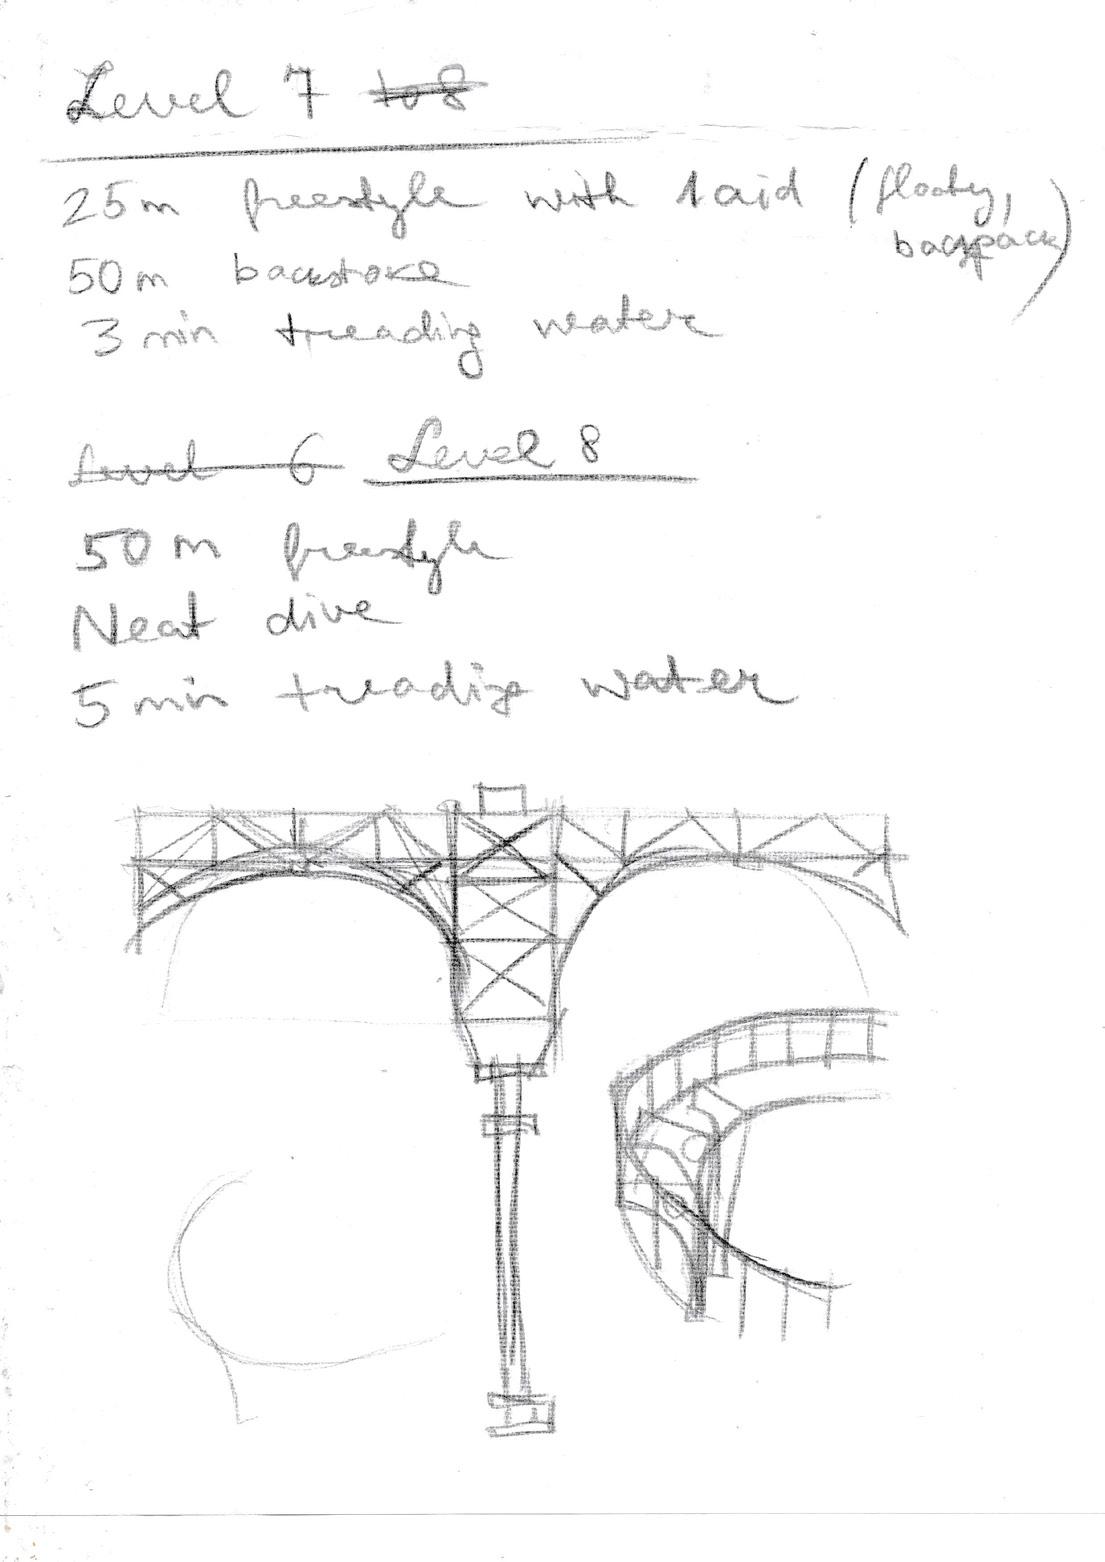 Level 7 to 8
25m freestyle with 1 aid (floaty,
backpack)
50m backstoke
3 min treading water
Level 6 Level 8
50 m freestyle
Neat dive
5 min treading water